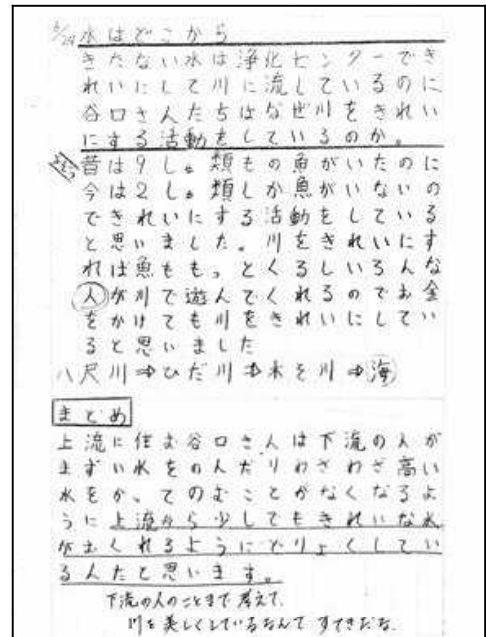 水はどこから
きたない水は浄化センターでき
れいにして川に流しているのに
谷口さんたちはなぜ川をきれい
にする活動をしているのか。
昔は9しゅ類もの魚がいたのに
今は2しゅ類しか魚がいないの
できれいにする活動をしている
と思いました。川をきれいにす
れば魚ももっとくるしいろんな
人が川で遊んでくれるのでお金
をかけても川をきれいにしてい
ると思いました
八尺川⇒ひだ川⇒木そ川⇒海
まとめ
上流に住む谷口さんは下流の人が
まずい水をのんだりわざわざ高い
水をかってのむことがなくなるよ
うに上流から少しでもきれいな水
がおくれるようにどりょくしてい
る人だと思います。
下流の人のことまで考えて、
川を美しくしているなんてすてきだな。